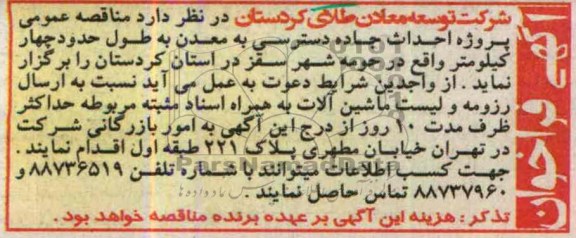 آگهی فراخوان
شرکت توسعه معادن طلای کردستان در نظر دارد مناقصه عمومی
پروژه احداث جاده دسترسی به معدن به طول حدود چهار
کیلومتر واقع در حومه شهر سقز در استان کردستان را برگزار
نماید . از واجدین شرایط دعوت به عمل می آید نسبت به ارسال
رزومه و لیست ماشین آلات به همراه اسناد مثبته مربوطه حداکثر
ظرف مدت ۱۰ روز از درج این آگهی به امور بازرگانی شرکت
در تهران خیابان مطهری پلاک ۲۲۱ طبقه اول اقدام نمایند .
جهت کسب اطلاعات میتوانند با شماره تلفن ۸۸۷۳۶۵۱۹ و
۸۸۷۳۷۹۶۰ تماس حاصل نمایند .
تذکر : هزینه این آگهی بر عهده برنده مناقصه خواهد بود .